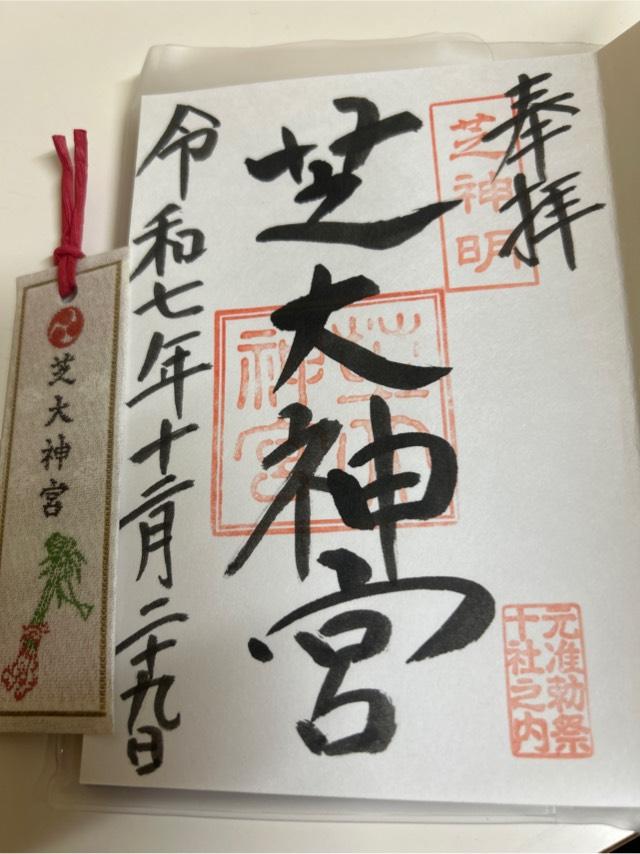 奉拝
芝神明
芝大神宮
芝大神宮
元准勅祭
十社之内
令和七年十二月二十九日
芝大神宮